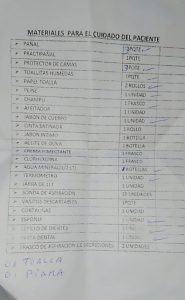 MATERIALES PARA EL CUIDADO DEL PACIENTE
PAÑAL 1 POTE
PRACTIPAÑAL 1 POTE
PROTECTOR DE CAMAS 1 POTE
TOALLITAS HUMEDAS 1 POTE
PAPEL TOALLA 2 ROLLOS
PEINE 1 UNIDAD
CHAMPU 1 FRASCO
AFEITADOR 1 UNIDAD
JABON DE CUERPO 1 UNIDAD
CINTA SATINADA 1 ROLLO
JABON 1 BOTELLA
ACEITE DE OLIVA 1 BOTELLA
CREMA HUMECTANTE 1 FRASCO
CLORHEXIDINA 1 FRASCO
AGUA MINERAL BOTELLAS
TERMOMETRO 1 UNIDAD
JARRA DE 1 LT 1 UNIDAD
SONDA DE ASPIRACION UNIDADES
VASITOS DESCARTABLES 1 POTE
UNIDAD
ESPONJA 1 UNIDAD
CEPILLO DE DIENTES 1 UNIDAD
PASTA DENTAL 1 UNIDAD
FRASCO DE ASPIRACION DE SECRECIONES 2 UNIDADES
TOALLA